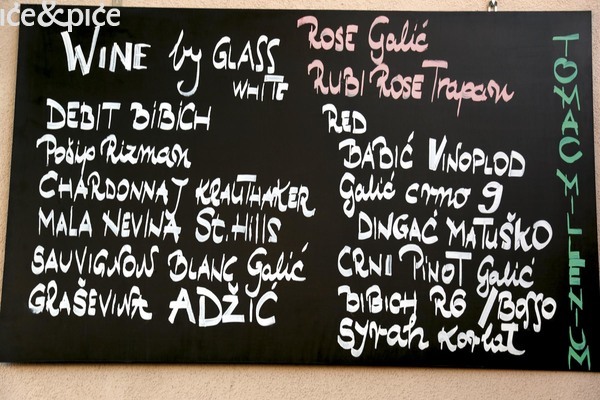 iće&piće
WINE by GLASS
WHITE
DEBIT BIBICH
Pošip Rizman
CHARDONNAY KRAUTHAKER
MALA NEVINA St. HILLS
SAUVIGNON BLANC Galić
GRAŠEVINA ADŽIĆ
ROSE Galić
RUBI ROSE Trapan
RED
BABIĆ VINOPLOD
Galić crno 9
DINGAĆ MATUŠKO
CRNI PINOT Galić
BIBICH R6 /
Syrah Korlat
TOMAC MILLENIUM